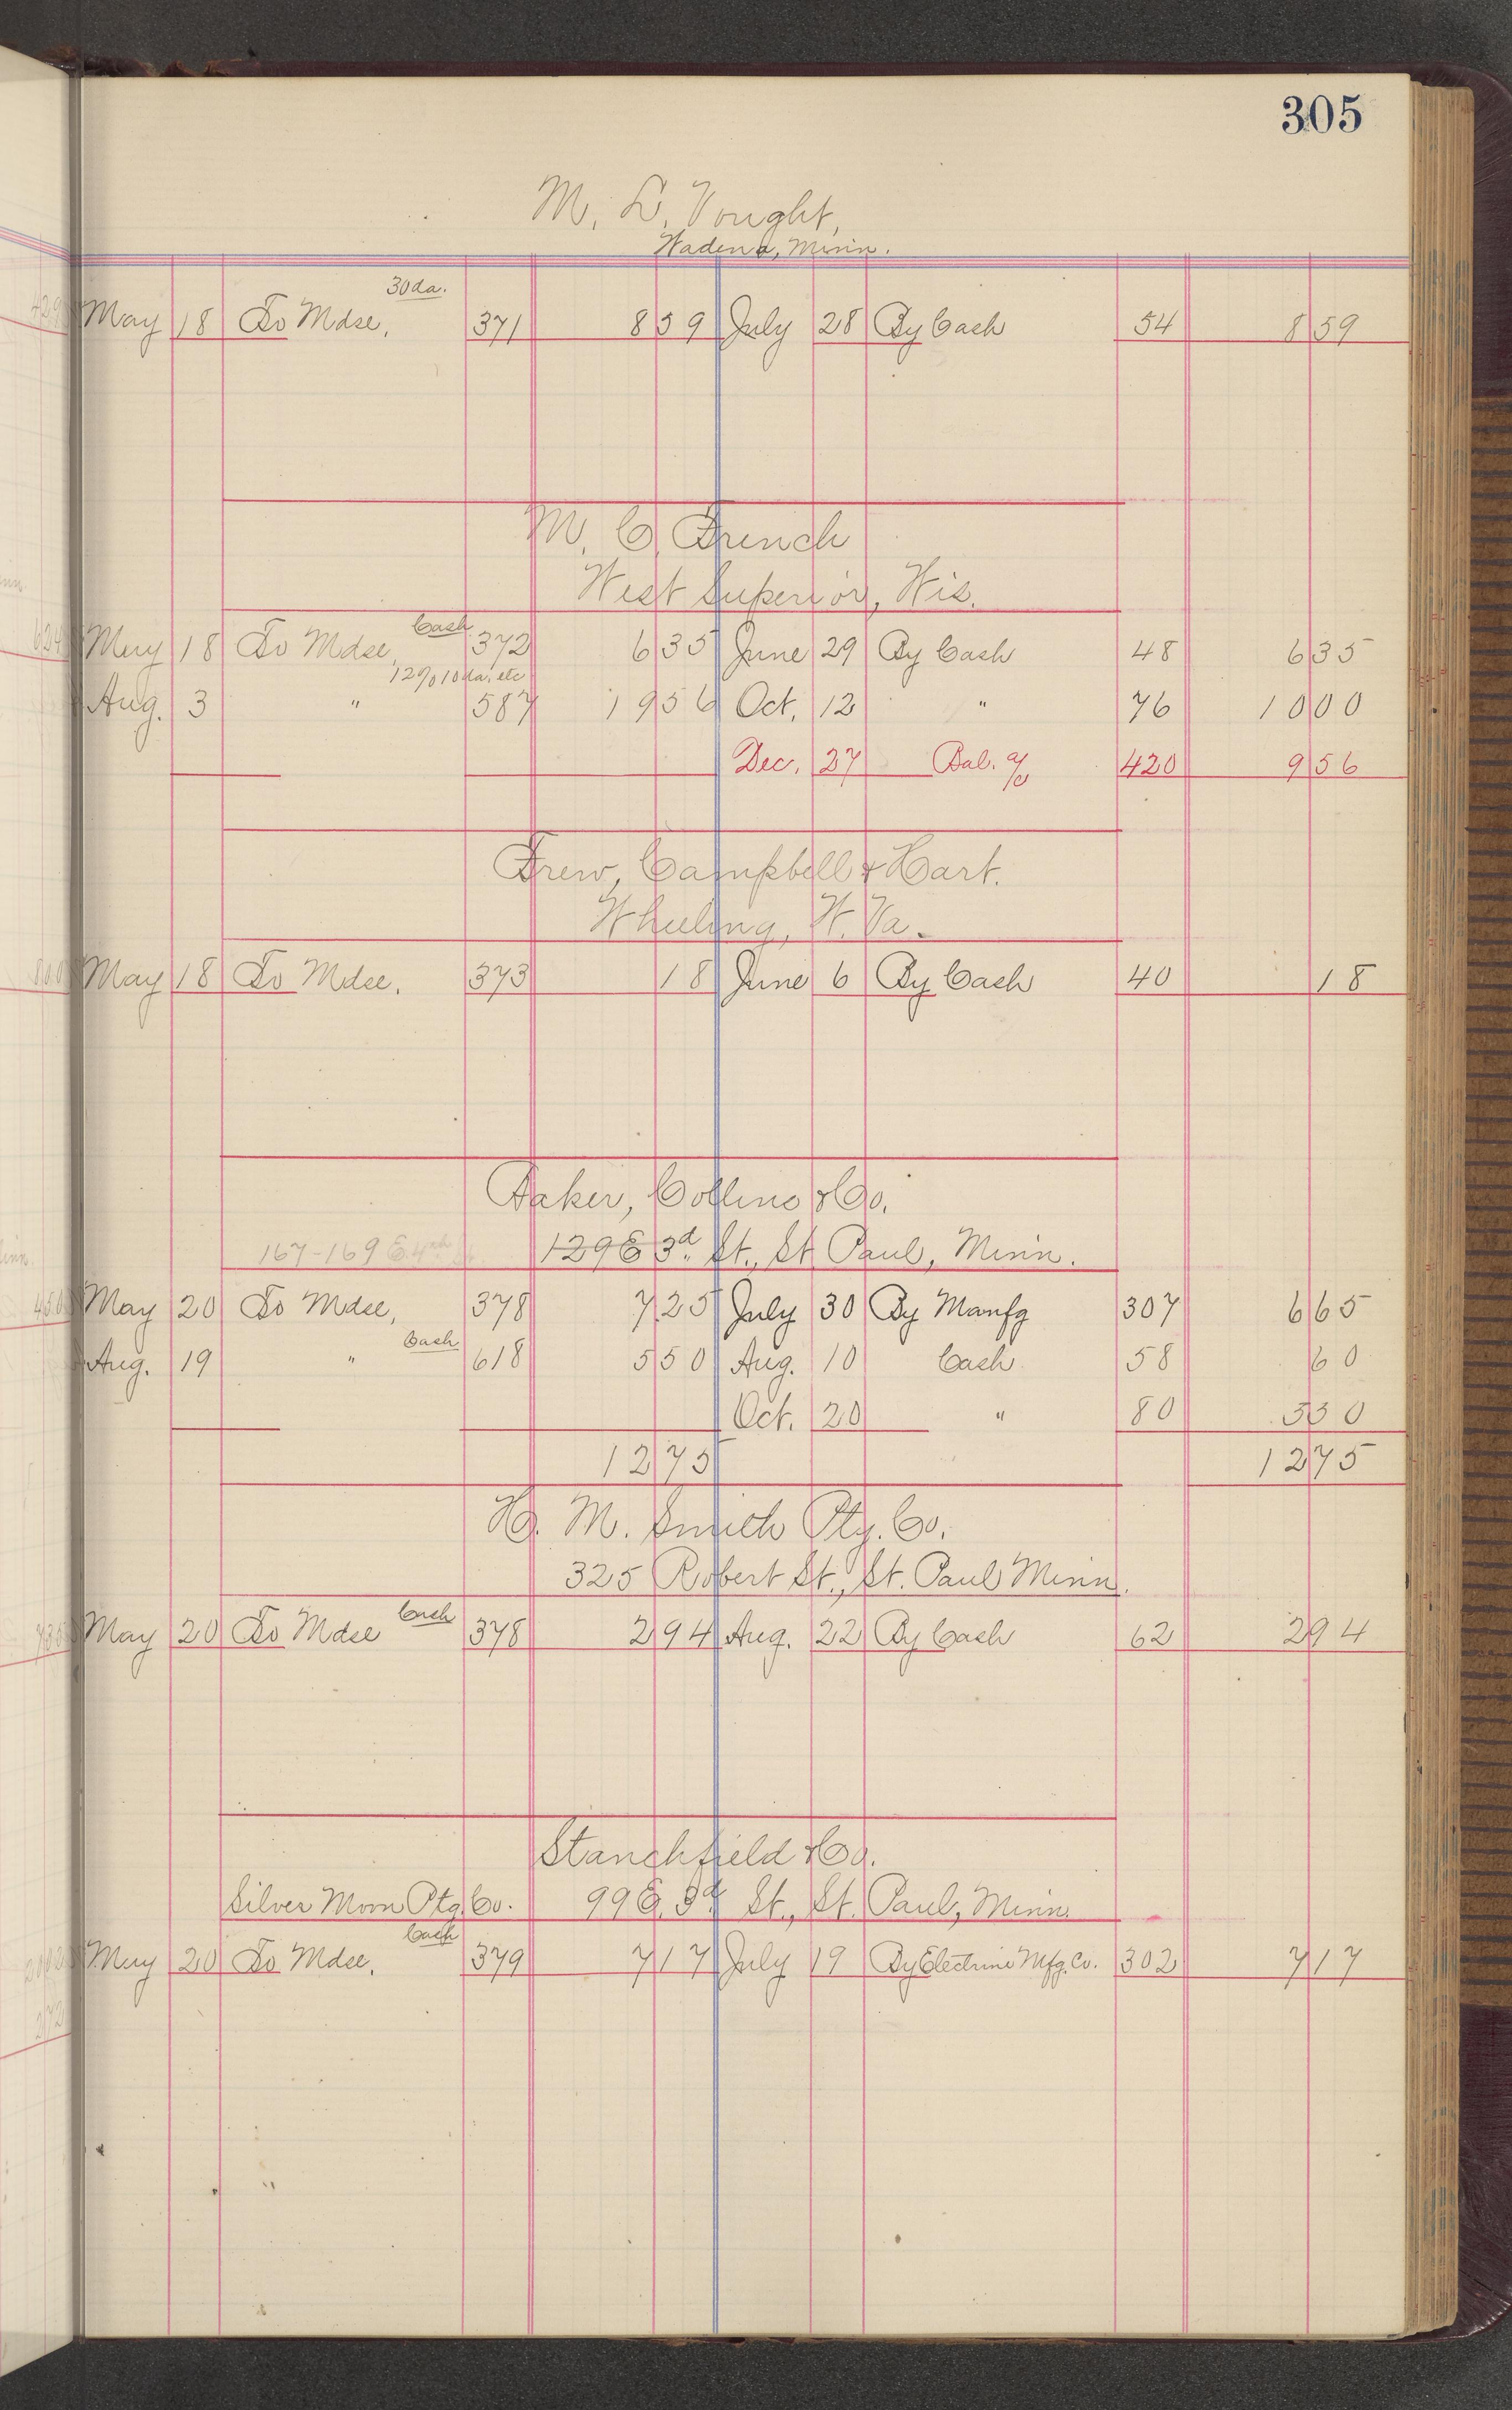 305
M. L. Vought,
Wadena, Minn.
30 da.
May 18 To Mdse, 371 8 59 July 28 By Cash 54 8 59
M. C. French
West Superior, Wis.
Cash
May 18 To Mdse, 372 6 35 June 29 By Cash 48 6 35
12% 10 da. etc
Aug. 3 " 587 19 56 Oct. 12 " 76 10 00
Dec. 27 Bal. a/c 420 9 56
Frew, Campbell & Hart.
Wheeling, W. Va.
May 18 To Mdse. 373 18 June 6 By Cash 40 18
Baker, Collins & Co.
167-169 E. 4th St. 129 E 3d St., St. Paul, Minn.
May 20 To Mdse, 378 7 25 July 30 By Manfg 307 6 65
Cash
Aug. 19 " 618 5 50 Aug. 10 Cash 58 60
Oct. 20 " 80 5 50
12 75 12 75
H. M. Smith Ptg. Co.
325 Robert St., St. Paul Minn.
May 20 To Mdse Cash 378 2 94 Aug. 22 By Cash 62 2 94
Stanchfield & Co.
Silver Moon Ptg. Co. 99 E. 3d St., St. Paul, Minn.
Cash
May 20 To Mdse. 379 7 17 July 19 By Electrine Mfg. Co. 302 7 17